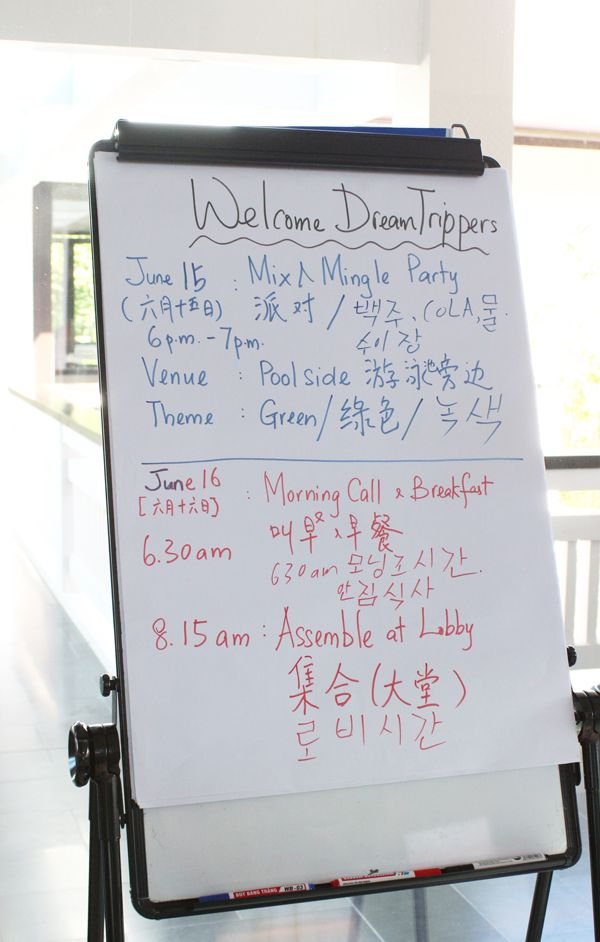 Welcome DreamTrippers
June 15 : Mix & Mingle Party
(六月十五日) 派对 / 백주, COLA, 물.
6p.m. - 7p.m. 수이장
Venue : Poolside 游泳池旁边
Theme : Green/綠色/녹색
June 16 : Morning Call & Breakfast
[六月十六日]
6.30am 叫早 & 早餐
630am 모닝코시간.
안짐식사
8.15 am : Assemble at Lobby
集合(大堂)
로비시간
BUT BANG TRANG WB-03